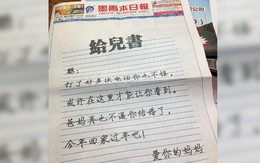 墨爾本日報
給兒書
鹏：
打了好多次电话你也不接，
或许在这里才能让你看到。
爸妈再也不逼你结婚了，
今年回家过年吧！
爱你的妈妈